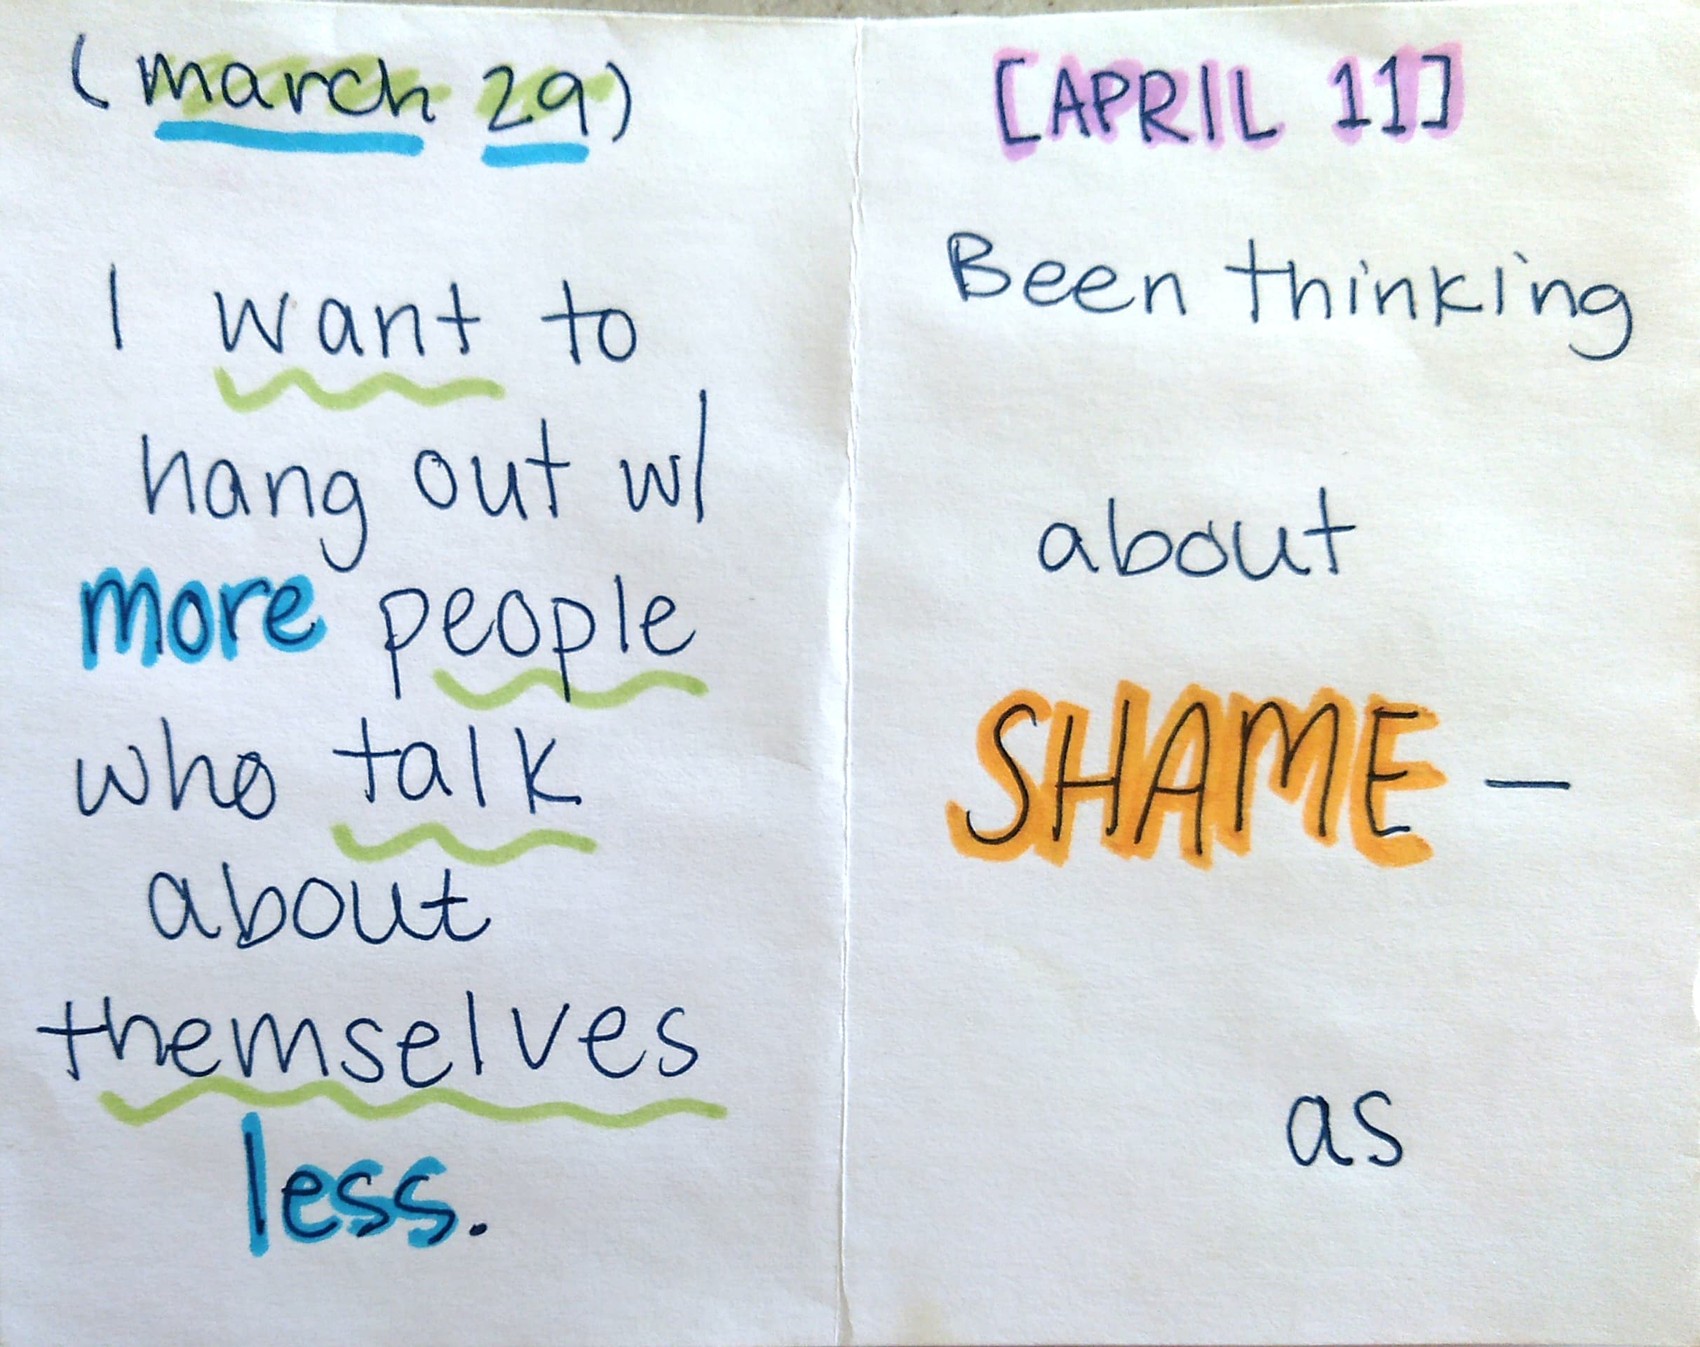 (march 29)
I want to
hang out w/
more people
who talk
about
themselves
less.
[APRIL 11]
Been thinking
about
SHAME —
as